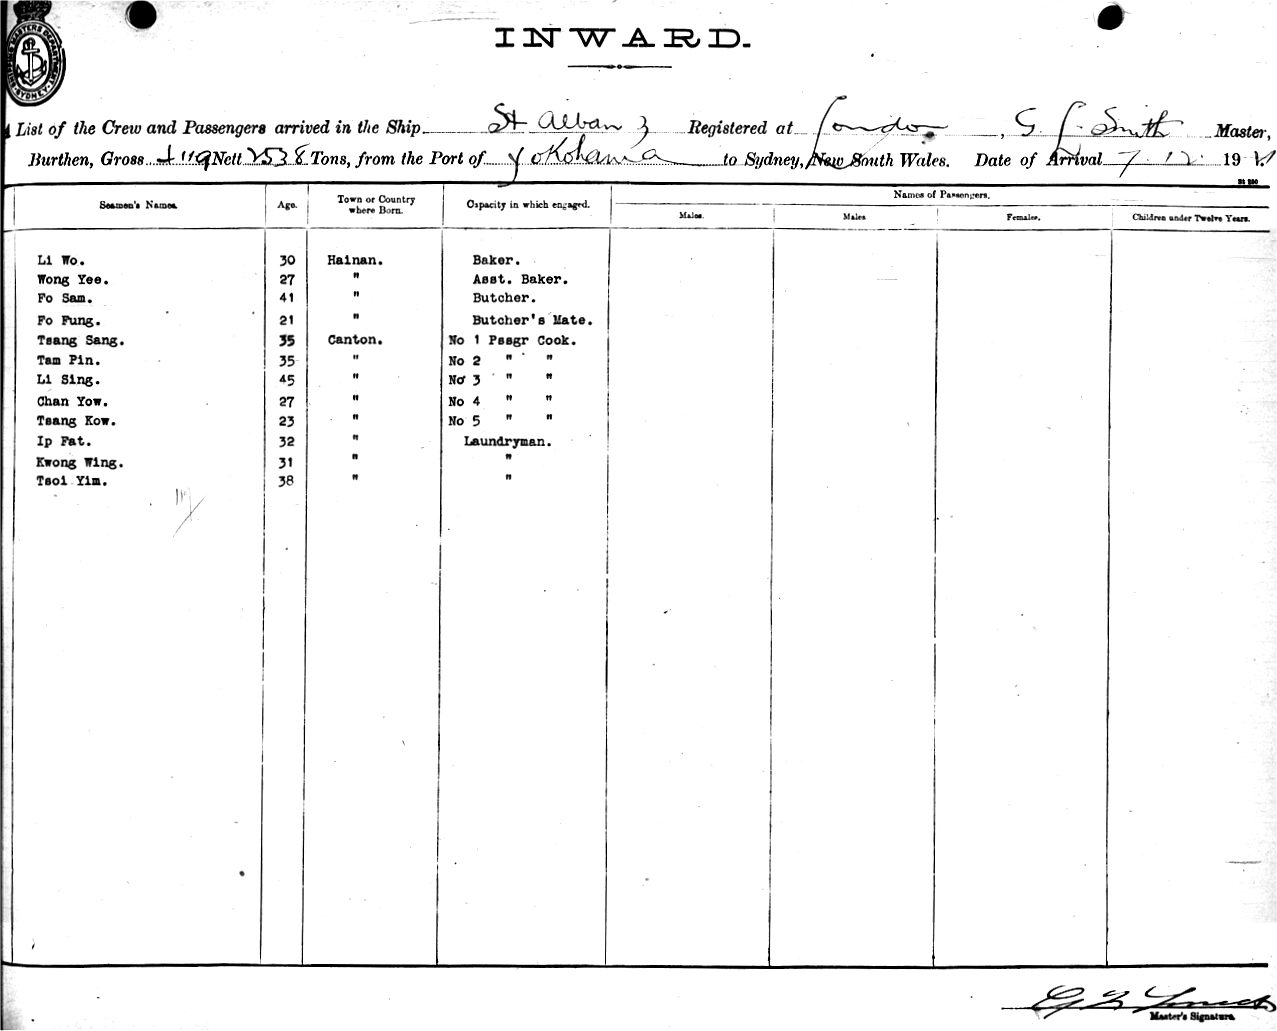 SHIPPING MASTERS DEPARTMENT SYDNEY
INWARD.
List of the Crew and Passengers arrived in the Ship St Albans Registered at London, G. L. Smith Master,
Burthen, Gross 4119 Nett 2538 Tons, from the Port of Yokohama to Sydney, New South Wales. Date of Arrival 7. 12. 19
Seamen's Names. Age. Town or Country where Born. Capacity in which engaged. Names of Passengers.
Males. Males Females. Children under Twelve Years.
Li Wo. 30 Hainan. Baker.
Wong Yee. 27 " Asst. Baker.
Fo Sam. 41 " Butcher.
Fo Fung. 21 " Butcher's Mate.
Tsang Sang. 35 Canton. No 1 Pssgr Cook.
Tam Pin. 35 " No 2 " "
Li Sing. 45 " No 3 " "
Chan Yow. 27 " No 4 " "
Tsang Kow. 23 " No 5 " "
Ip Fat. 32 " Laundryman.
Kwong Wing. 31 " "
Tsoi Yim. 38 " "
Master's Signature.